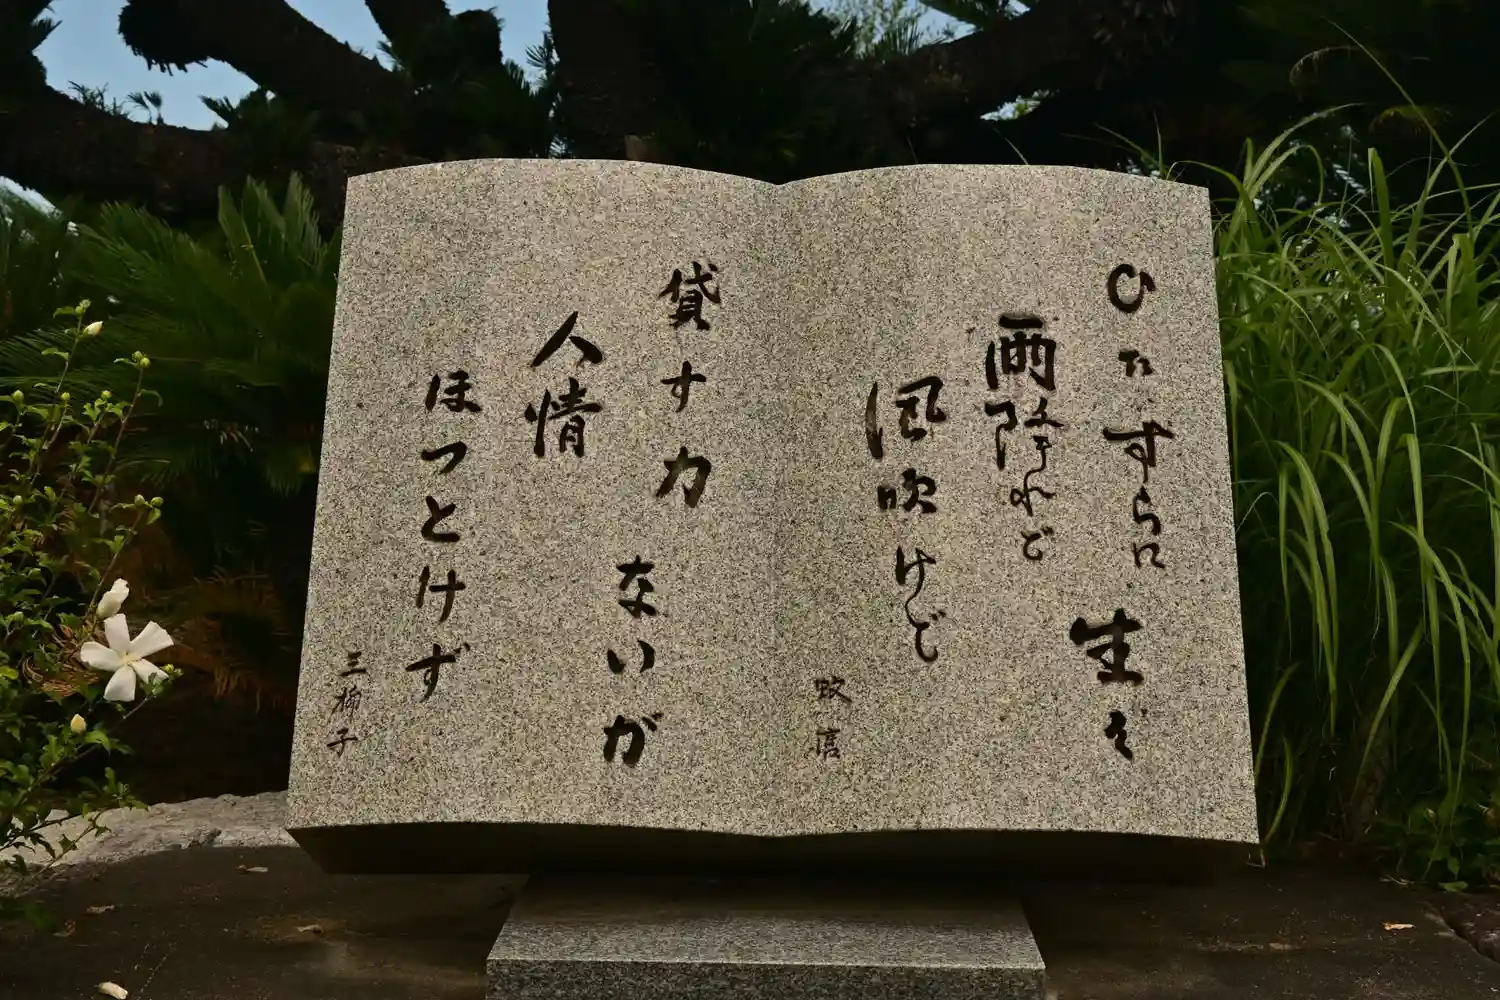 ひたすらに 生き
雨降れど
風吹けど
政信
貸す力 ないが
人情
ほっとけず
三柳子